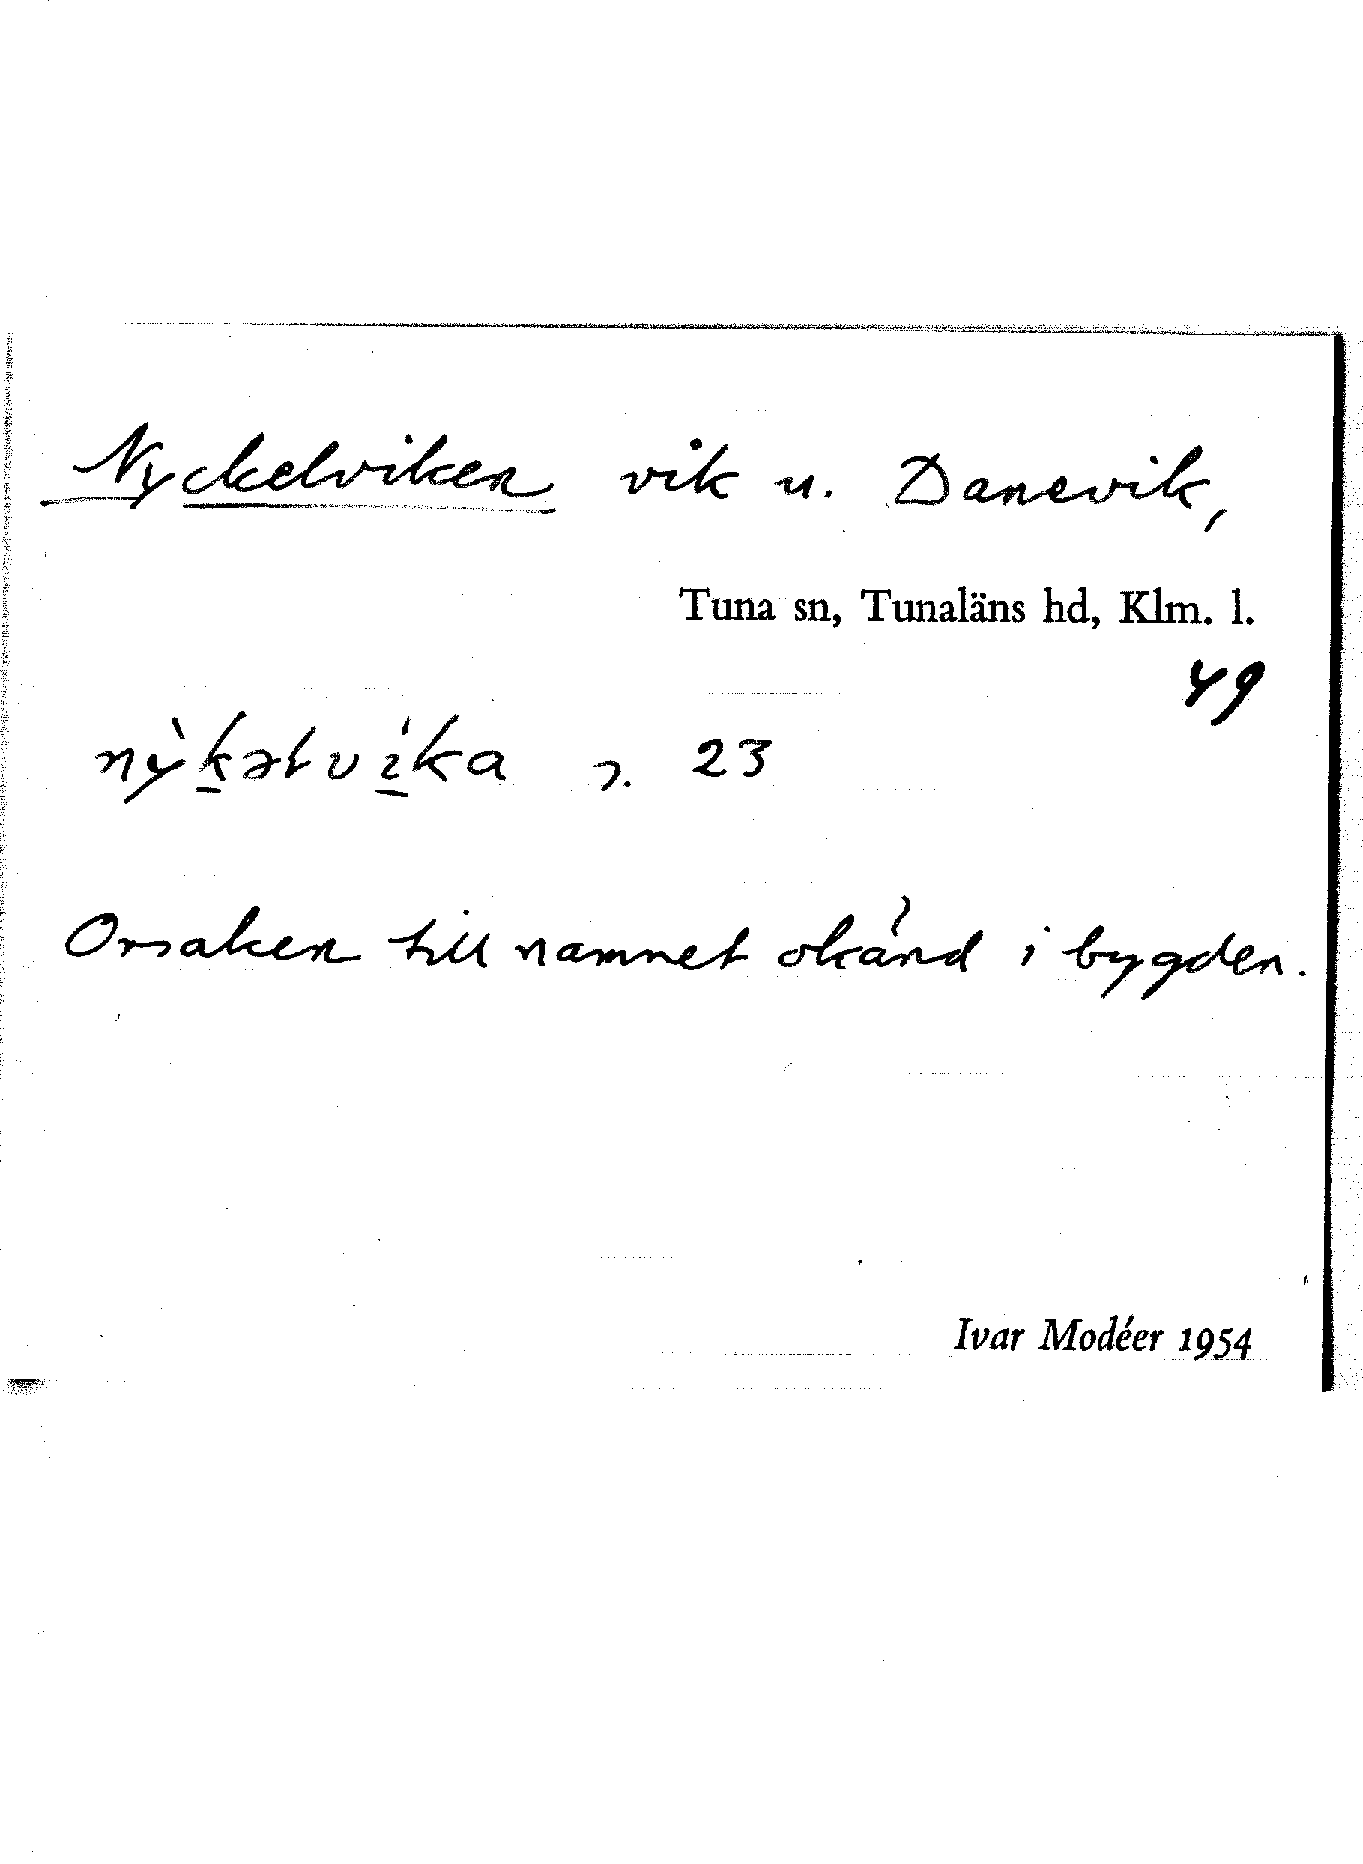 Nyckelviken vik u. Danevik,
Tuna sn, Tunaläns hd, Klm. l.
49
nỳk̲əlví̲ka 23
Orsaken till namnet okänd i bygden.
Ivar Modéer 1954